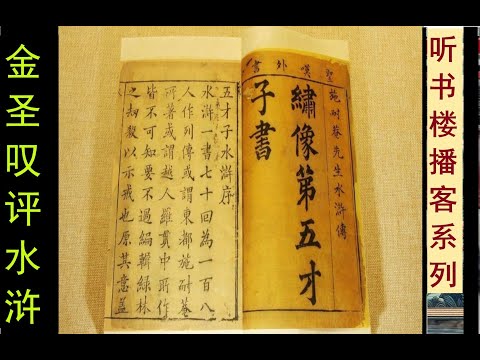 金圣叹评水浒
听书楼播客系列
聖嘆外書
施耐菴先生水滸傳
繡像第五才
子書
五才子水滸序
水滸一書七十回為一百八
人作列傳或謂東都施耐菴
所著或謂越人羅貫中所作
皆不可知要不過編輯綠林
之刼殺以示戒也原其意蓋